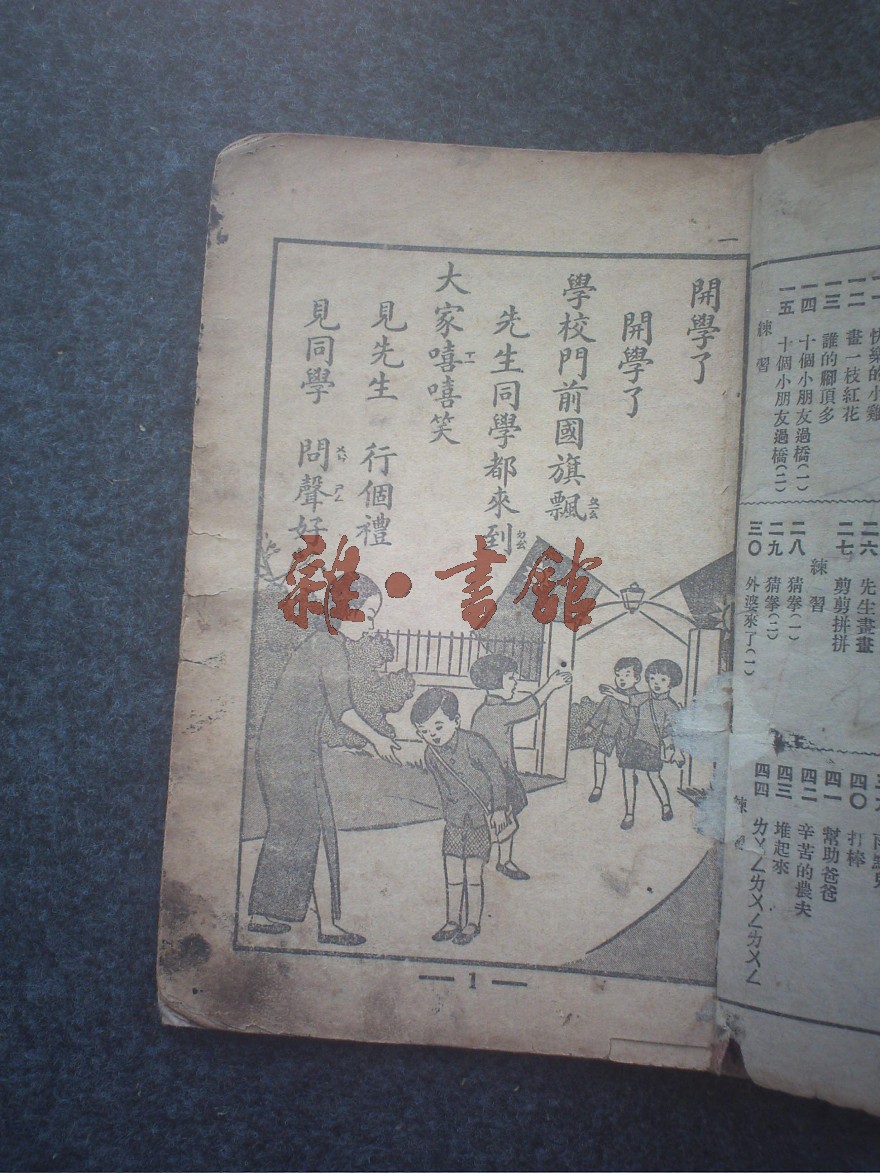 一一 快樂的小雞
一二 畫一枝紅花
一三 誰的腳頂多
一四 十個小朋友過橋(一)
一五 十個小朋友過橋(二)
練習
二六 先生畫畫
二七 剪剪拼拼
練習
二八 猜拳(一)
二九 猜拳(二)
三〇 外婆來了(一)
四〇 打棒
四一 幫助爸爸
四二 辛苦的農夫
四三 堆起來
四四 ㄉㄨㄥㄉㄨㄥㄉㄨㄥ
練習
一
開學了
開學了
學校門前國旗飄ㄆㄧㄠ
先生同學都來到ㄉㄠ
大家嘻ㄒㄧ嘻笑
見先生 行個禮
見同學 問ㄨㄣ聲ㄕㄥ好
雜·書館
— 1 —